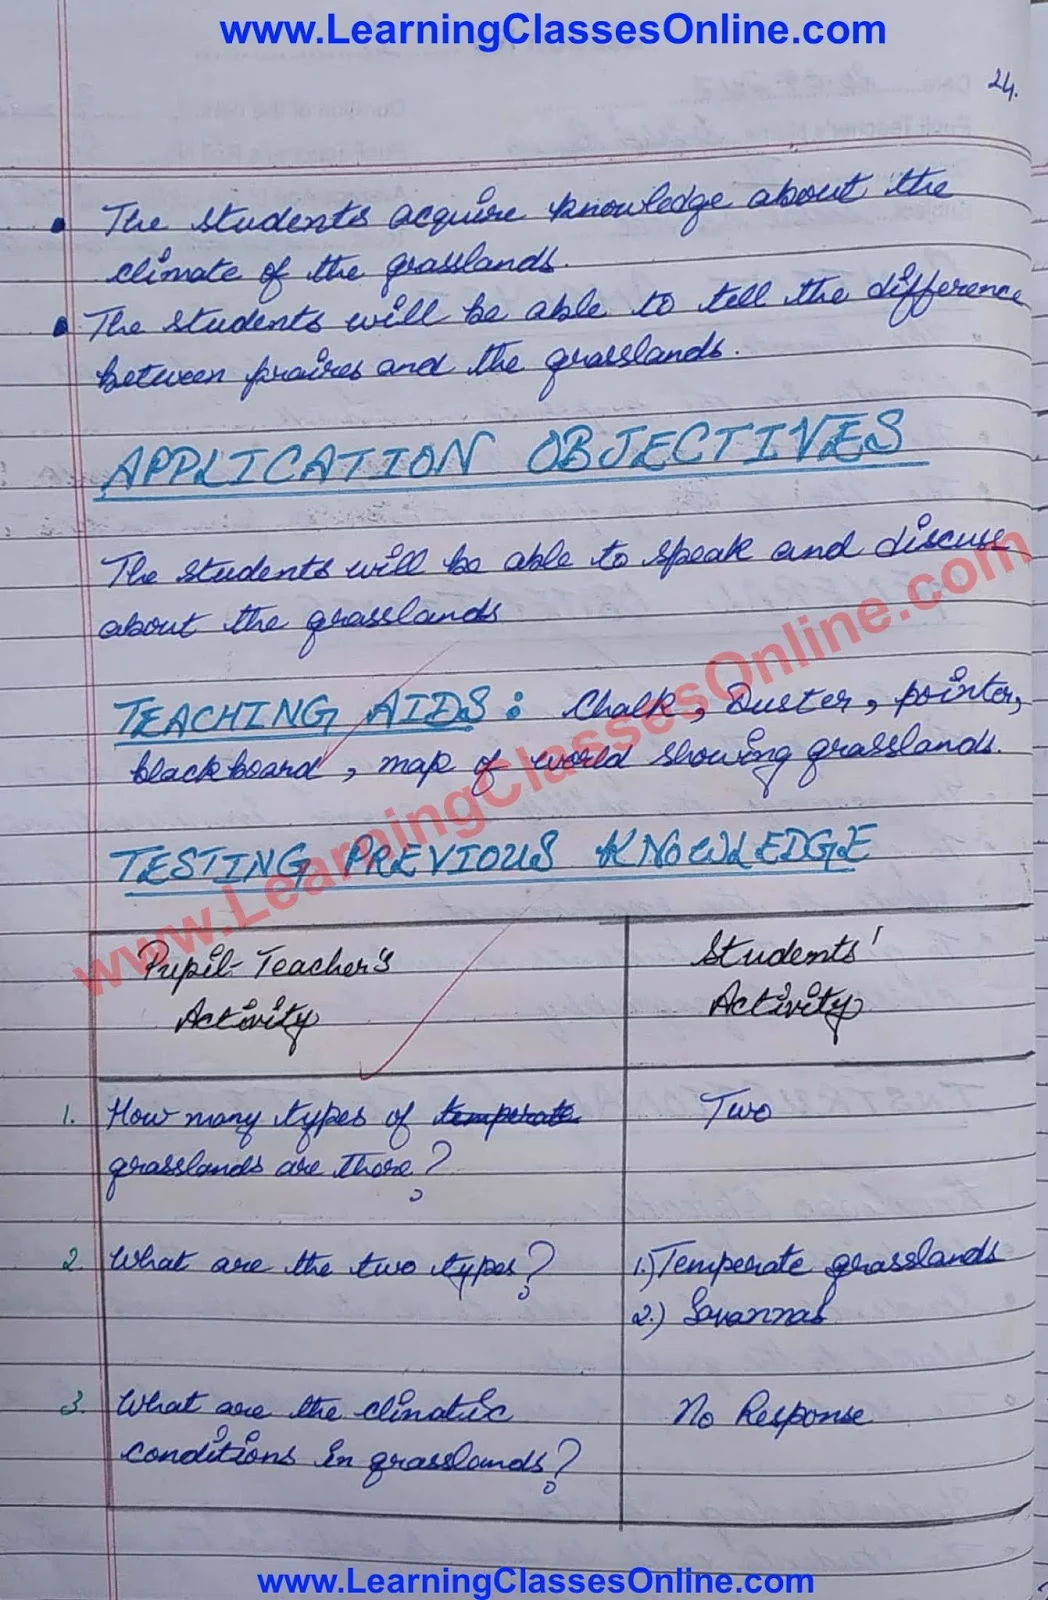 www.LearningClassesOnline.com
24.
• The students acquire knowledge about the
climate of the grasslands.
• The students will be able to tell the difference
between praires and the grasslands.
APPLICATION OBJECTIVES
The students will be able to speak and discuse
about the grasslands
TEACHING AIDS: Chalk, Duster, pointer,
blackboard, map of world showing grasslands.
www.LearningClassesOnline.com
TESTING PREVIOUS KNOWLEDGE
Pupil-Teacher's
Activity
Students'
Activity
1. How many types of temperate
grasslands are there?
Two
2. What are the two types?
1.) Temperate grasslands
2.) Savannas
3. What are the climatic
conditions in grasslands?
No Response
www.LearningClassesOnline.com